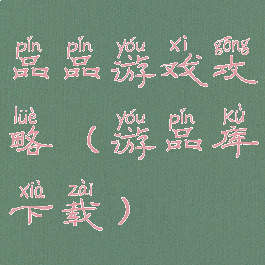 pǐn pǐn yóu xì gōng
品品游戏攻
lüè yóu pǐn kù
略（游品库
xià zài
下载）